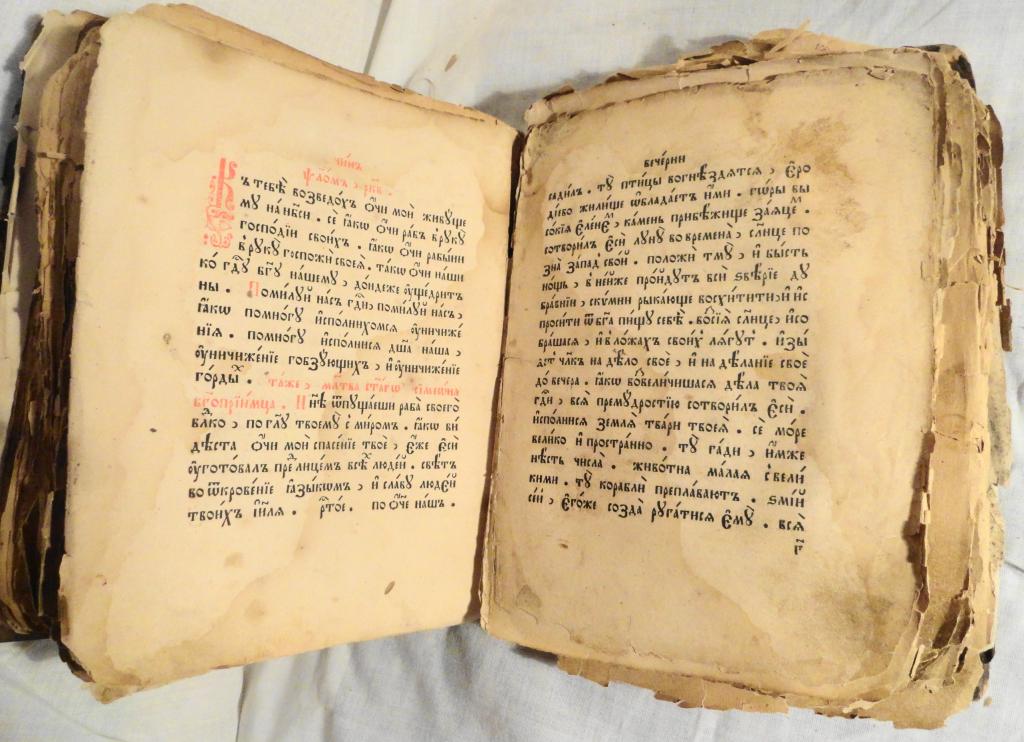 чи́нъ
ѱало́мъ , рк҃в .
Къ тебѣ̀ возведо́хъ ѻ҆́чи моѝ живу́ще
му на нб҃си . се ꙗ҆́кѡ ѻ҆́чи ра́бъ в̾ руку̀
господі́и свои́хъ . ꙗ҆́кѡ ѻ҆́чи рабы́ни
в̾ руку̀ госпожѝ своеѧ̀ . та́кѡ ѻ҆́чи на́ши
ко́ гдⷭ҇у бг҃у на́шему , до́ндеже ᲂу҆ще́дритъ
ны̀ . Поми́луй на́съ гдⷭ҇и , поми́луй на́съ ,
ꙗ҆́кѡ помно́гу и҆спо́лнихомсѧ ᲂу҆ничиже́
нїѧ . помно́гу и҆спо́лнисѧ дш҃а̀ на́ша ,
ᲂу҆ничиже́нїе гобзу́ющихъ , и҆ ᲂу҆ничиже́нїе
го́рдыⷯ . та́же , мл҃тва ст҃а́гѡ сімеѡ́на
бг҃опрїи́мца . Нн҃ѣ ѿпуща́еши раба̀ своего̀
влⷣко , по гл҃у твоему̀ с̾ ми́ромъ . ꙗ҆́кѡ ви́
дѣста ѻ҆́чи моѝ спасе́нїе твоѐ , є҆́же є҆сѝ
ᲂу҆гото́валъ пре лице́мъ всѣⷯ люде́й . свѣ́тъ
во ѿкрове́нїе ꙗ҆зы́комъ , и҆ сла́ву люде́й
твои́хъ і҆и҃лѧ . трⷭ҇то́е . по ѻ҆́че на́шъ .
вече́рни
сади́лъ . тᲂу̀ пти́цы вогнѣздѧ́тсѧ , є҆ро
ді́ево жили́ще ѡ҆блада́етъ и҆́ми . го́ры вы
со́кїѧ є҆ле́неⷨ , ка́мень прибѣ́жище за́ѧцеⷨ .
сотвори́лъ є҆сѝ луну̀ во времена̀ , сл҃нце по
зна̀ за́падъ сво́й . положѝ тму̀ , и҆ бы́сть
но́щь , в̾ не́йже про́йдутъ всѝ ѕвѣ́рїе ду
бра́внїи , ски́мни рыка́юще восхи́тити , и҆ и҆с
проси́ти ѿ бг҃а пи́щу себѣ̀ . восїѧ̀ сл҃нце , и҆ со
бра́шасѧ , и҆ в̾ ло́жахъ свои́хъ лѧ́гутъ . и҆зы́
детъ чл҃къ на дѣ́ло своѐ , и҆ на дѣ́ланїе своѐ
до́ вечера . ꙗ҆́кѡ возвели́чишасѧ дѣла̀ твоѧ̀
гдⷭ҇и , всѧ̀ прему́дростїю сотвори́лъ є҆сѝ .
и҆спо́лнисѧ землѧ̀ тва́ри твоеѧ̀ . сѐ мо́ре
вели́ко и҆ простра́нно . тᲂу̀ га́ди , и҆́мже
нѣ́сть числа̀ . живо́тна ма́лаѧ с̾ вели́
кими . тᲂу̀ кораблѝ препла́ваютъ . ѕмі́й
се́й , є҆го́же созда̀ руга́тисѧ є҆му̀ . всѧ̀
г҃